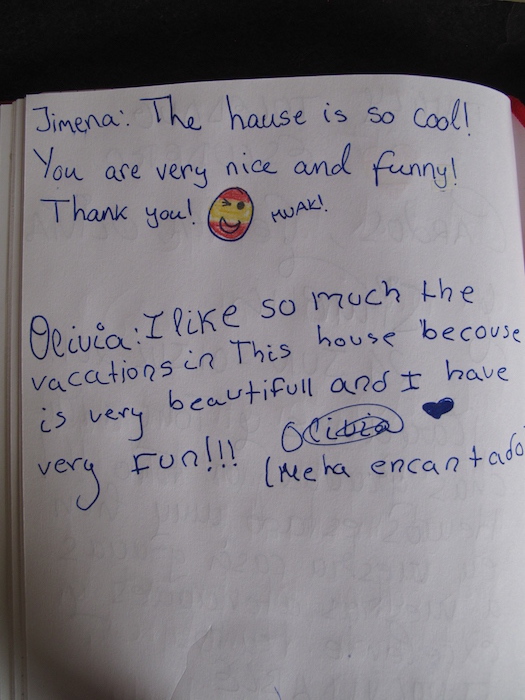 Jimena: The hause is so cool!
You are very nice and funny!
Thank you! MUAK!
Olivia: I like so much the
vacations in This house becouse
is very beautifull and I have
very FUN!!! Olivia
(Meha encantado